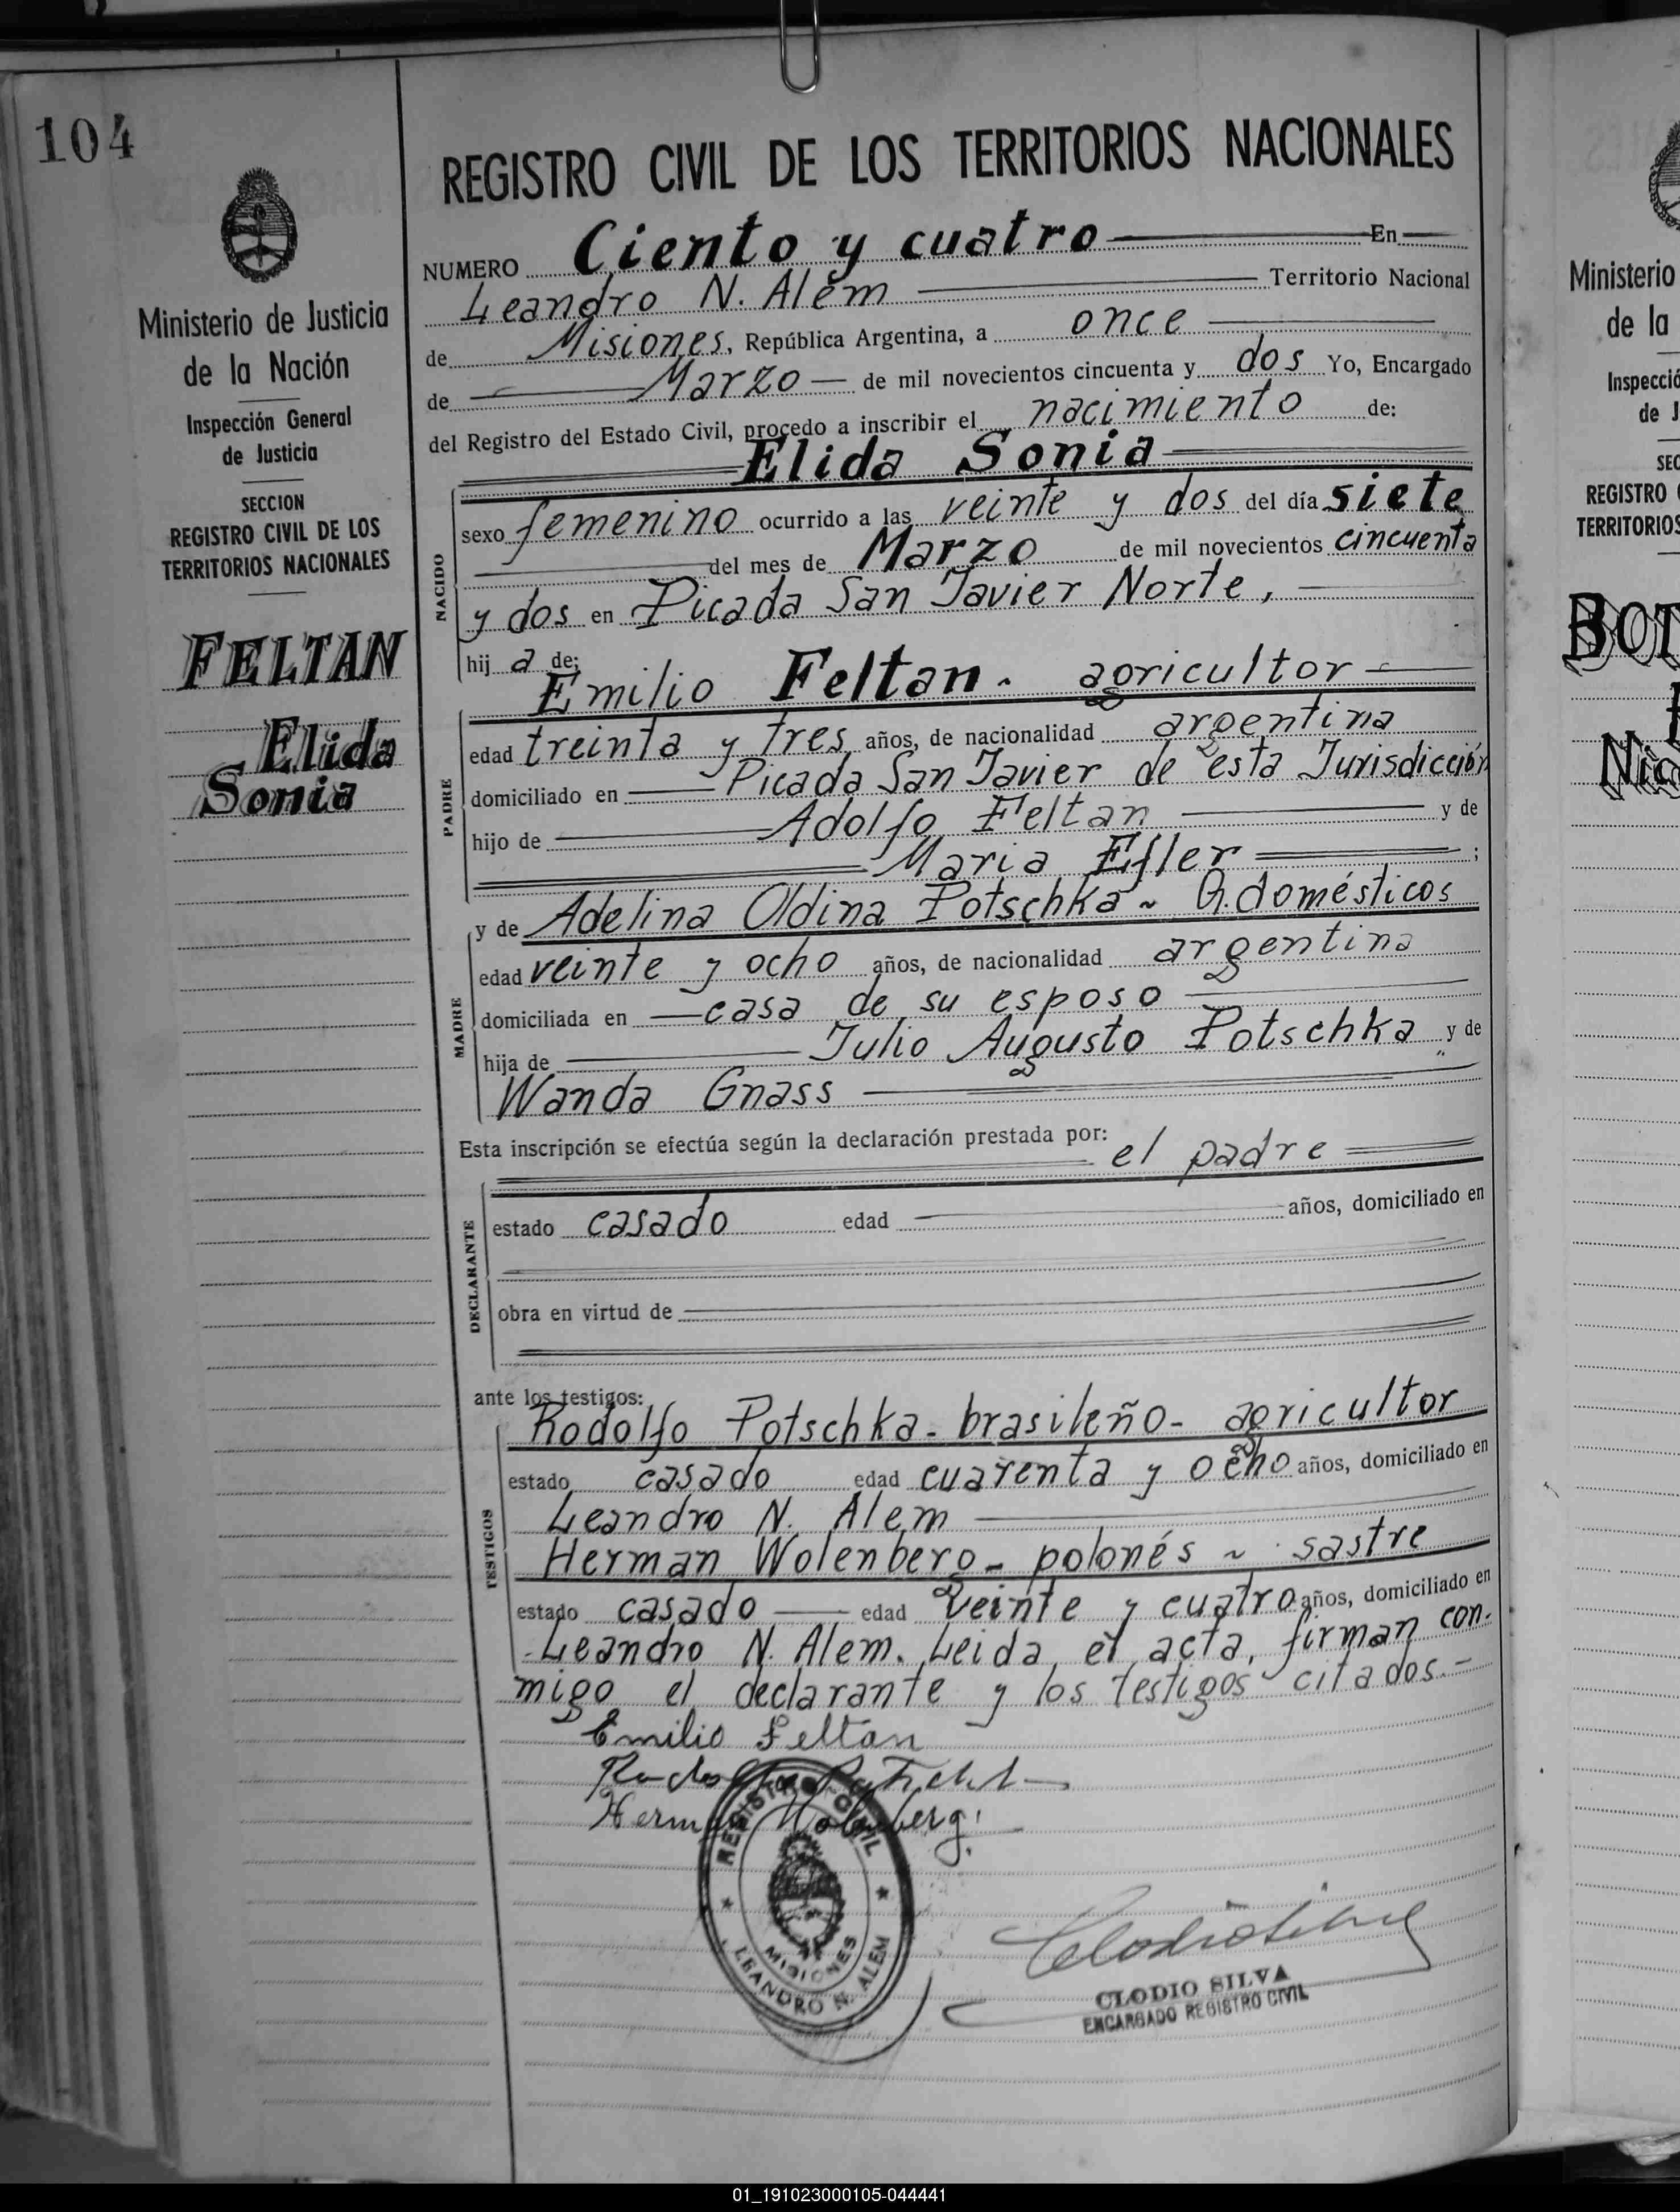 104
REGISTRO CIVIL DE LOS TERRITORIOS NACIONALES
Ministerio de Justicia
de la Nación
Inspección General
de Justicia
SECCION
REGISTRO CIVIL DE LOS
TERRITORIOS NACIONALES
FELTAN
Elida
Sonia
NUMERO Ciento y cuatro En
Leandro N. Alem Territorio Nacional
de Misiones, República Argentina, a once
de Marzo de mil novecientos cincuenta y dos Yo, Encargado
del Registro del Estado Civil, procedo a inscribir el nacimiento de:
Elida Sonia
NACIDO
sexo femenino ocurrido a las veinte y dos del día siete
del mes de Marzo de mil novecientos cincuenta
y dos en Picada San Javier Norte,
hij a de;
Emilio Feltan. agricultor
PADRE
edad treinta y tres años, de nacionalidad argentina
domiciliado en Picada San Javier de esta Jurisdicción
hijo de Adolfo Feltan y de
Maria Efler ;
y de Adelina Oldina Potschka ~ Q. domésticos
MADRE
edad veinte y ocho años, de nacionalidad argentina
domiciliada en casa de su esposo
hija de Julio Augusto Potschka y de
Wanda Gnass
Esta inscripción se efectúa según la declaración prestada por:
el padre
DECLARANTE
estado casado edad años, domiciliado en
obra en virtud de
ante los testigos:
Rodolfo Potschka - brasileño - agricultor
TESTIGOS
estado casado edad cuarenta y ocho años, domiciliado en
Leandro N. Alem
Herman Wolenberg - polonés ~ sastre
estado casado edad veinte y cuatro años, domiciliado en
Leandro N. Alem. Leida el acta, firman con-
migo el declarante y los testigos citados.-
Emilio Feltan
Herman Wolenberg
REGISTRO CIVIL
MISIONES
LEANDRO N. ALEM
CLODIO SILVA
ENCARGADO REGISTRO CIVIL
Ministerio
de la
Inspecció
de J
SEC
REGISTRO
TERRITORIOS
BOT
Nic
01_191023000105-044441